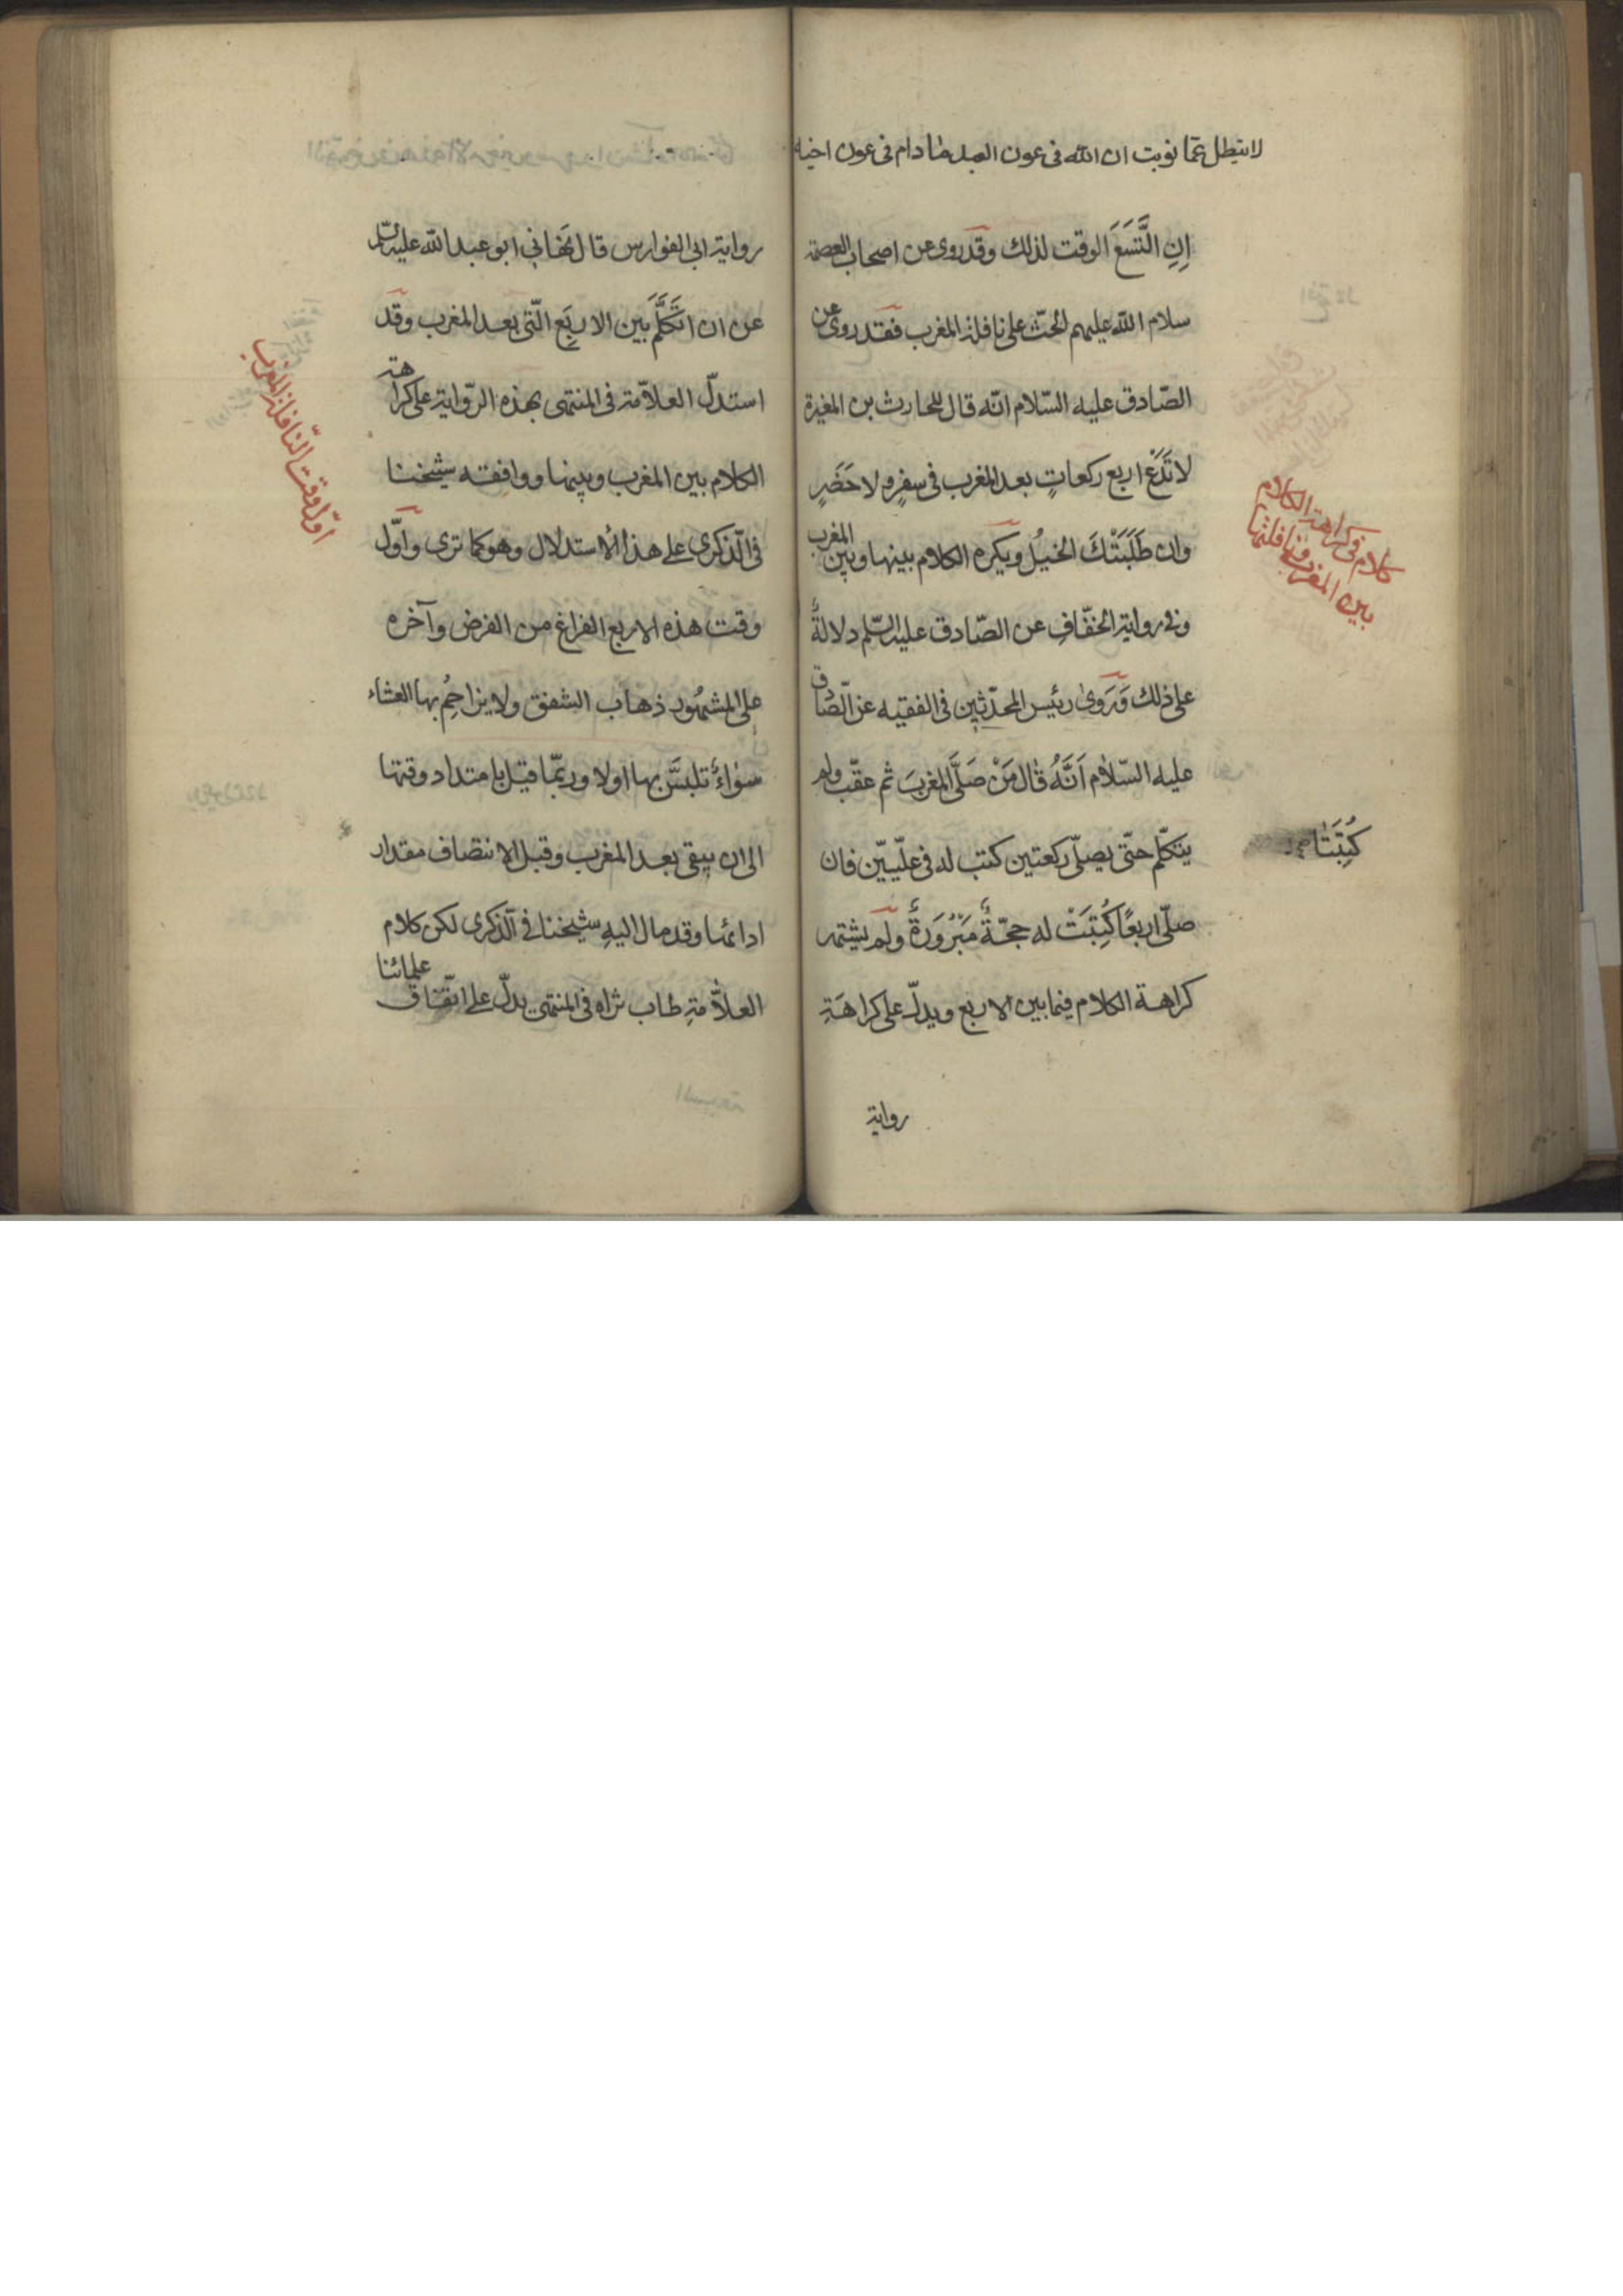 لا تبطل عما نويت ان الله فى عون العبد ما دام فى عون اخيه
اِنِ اتَّسَعَ الوقت لذلك وقد روى عن اصحاب العصمة
سلام الله عليهم الحثّ على نافلة المغرب فقد روى عن
الصّادق عليه السّلام انّه قال للحارث بن المغيرة
لا تَدَع اربع ركعاتٍ بعد المغرب فى سفرٍ ولا حَضَرٍ
وان طَلَبَتْكَ الخيلُ ويكره الكلام بينها وبين المغرب
وفى رواية الخفّافِ عن الصّادق عليه السّلم دلالةٌ
على ذلك وَرَوىٰ رئيس المحدّثين فى الفقيه عن الصّادق
عليه السّلام اَنَّهُ قالَ مَنْ صَلَّى المغربَ ثم عقّب ولم
يتكلّم حتّى يصلّى ركعتين كتب له فى علّيّين فان
صلّى اربعًا كُتِبَتْ له حجّةٌ مَبْرُورَةٌ ولم يشتهر
كراهة الكلام فيما بين الاربع ويدلّ على كراهَةِ
رواية
كلام فى كراهة الكلام
بين المغرب ونافلتها
كُتِبَتَا
رواية ابى الفوارس قال نَهَانِي ابو عبد الله عليه السّلم
عن ان اتَكَلَّمَ بَين الاربَعِ الّتى بعد المغرب وقد
استدلّ العلاّمة فى المنتهى بهذه الرّواية على كراهة
الكلام بين المغرب وبينها ووافقه شيخنا
فى الذّكرى على هذا الاستدلال وهو كما ترى واوّل
وقت هذه الاربع الفراغ من الفرض وآخره
على المشهُور ذهاب الشفق ولا يزاحِمُ بها العشاء
سوٰاءٌ تلبَّسَ بها اولا وربّما قيل بامتداد وقتها
الى ان يبقى بعد المغرب وقبل الانتصاف مقدار
ادائها وقد مال اليهِ شيخنا فى الذّكرى لكن كلام
العلاّمةِ طاب ثراه فى المنتهى يدلّ على اتّفاق علمائنا
اوّل وقت النّافلة المغرب